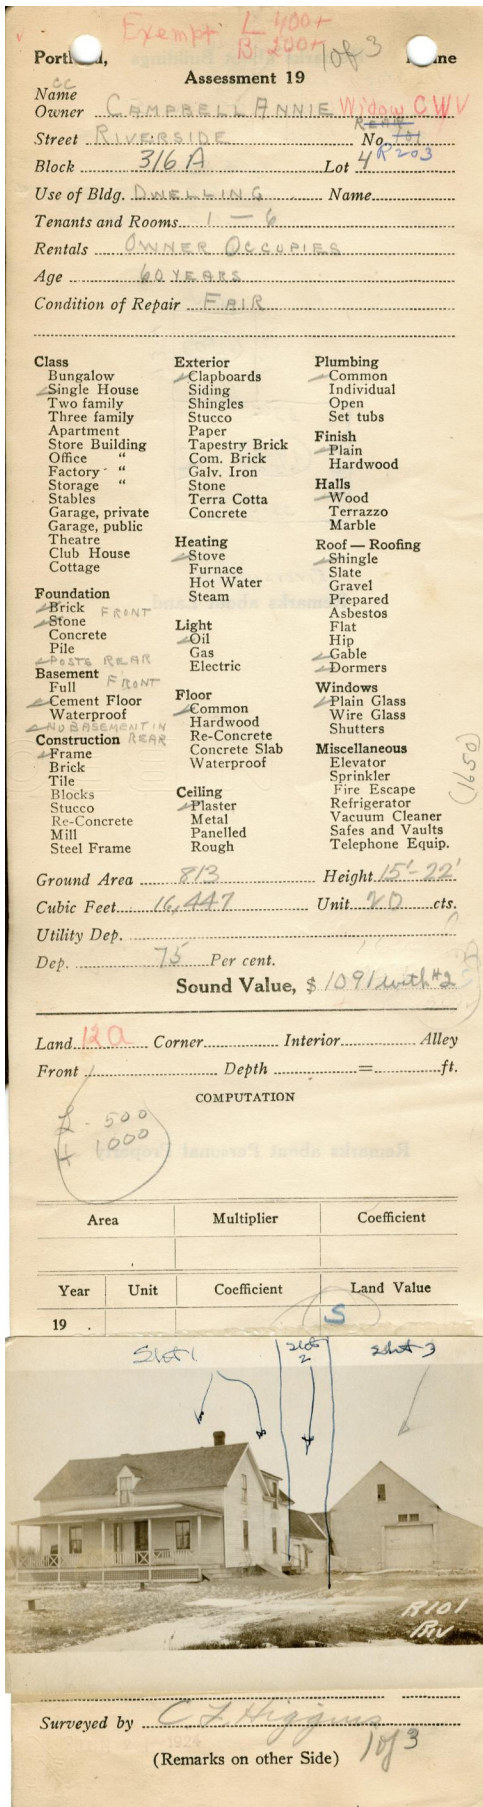 Exempt L 400+
B 200+
1 of 3
Portland, Maine
Assessment 19
CC
Name
Owner CAMPBELL ANNIE Widow CWV
REAR
Street RIVERSIDE No. 101
R203
Block 316A Lot 4
Use of Bldg. DWELLING Name
Tenants and Rooms 1 - 6
Rentals OWNER OCCUPIES
Age 60 YEARS
Condition of Repair FAIR
Class
Bungalow
Single House
Two family
Three family
Apartment
Store Building
Office "
Factory "
Storage "
Stables
Garage, private
Garage, public
Theatre
Club House
Cottage
Foundation
Brick FRONT
Stone
Concrete
Pile
POSTS REAR
Basement
Full FRONT
Cement Floor
Waterproof
NO BASEMENT IN
REAR
Construction
Frame
Brick
Tile
Blocks
Stucco
Re-Concrete
Mill
Steel Frame
Exterior
Clapboards
Siding
Shingles
Stucco
Paper
Tapestry Brick
Com. Brick
Galv. Iron
Stone
Terra Cotta
Concrete
Heating
Stove
Furnace
Hot Water
Steam
Light
Oil
Gas
Electric
Floor
Common
Hardwood
Re-Concrete
Concrete Slab
Waterproof
Ceiling
Plaster
Metal
Panelled
Rough
Plumbing
Common
Individual
Open
Set tubs
Finish
Plain
Hardwood
Halls
Wood
Terrazzo
Marble
Roof — Roofing
Shingle
Slate
Gravel
Prepared
Asbestos
Flat
Hip
Gable
Dormers
Windows
Plain Glass
Wire Glass
Shutters
Miscellaneous
Elevator
Sprinkler
Fire Escape
Refrigerator
Vacuum Cleaner
Safes and Vaults
Telephone Equip.
(1650)
Ground Area 813 Height 15'-22'
Cubic Feet 16,447 Unit 20 cts.
Utility Dep.
Dep. 75 Per cent.
Sound Value, $ 1091 with #2
Land 12a Corner Interior Alley
Front Depth = ft.
COMPUTATION
L - 500
H 1000
Area Multiplier Coefficient
Year Unit Coefficient Land Value
19
S
Sht 1 Sht 2 Sht 3
R101
Riv
Surveyed by C L Higgins
1924
(Remarks on other Side) 1 of 3